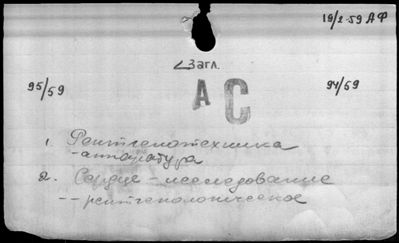 19/2-59 АФ
<Загл.
95/59
АС
94/59
1. Рентгенотехника
-аппаратура
2. Сердце - исследование
-- рентгенологическое